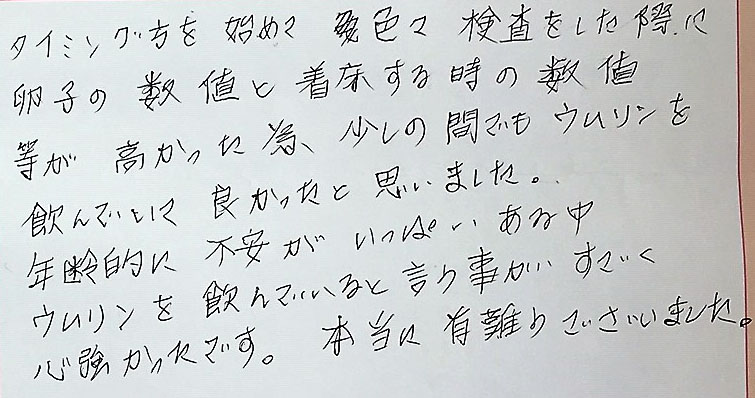 タイミング方を 始めて 色々 検査をした際に
卵子の 数値と 着床する時の 数値
等が 高かった為、少しの間でも ウムリンを
飲んでいて 良かったと 思いました。
年齢的に 不安が いっぱい ある中
ウムリンを 飲んでいると言う事が すごく
心強かったです。 本当に 有難うございました。